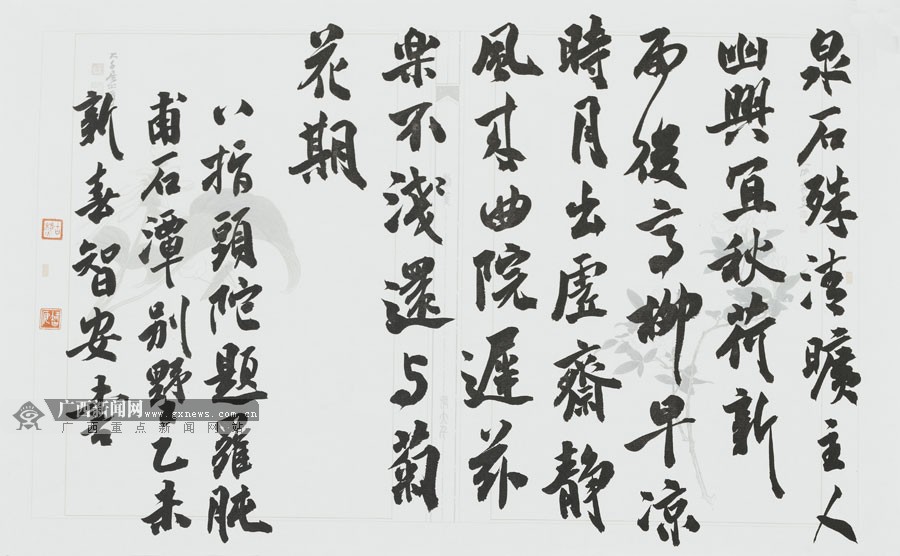 泉石殊清曠主人
幽興宜秋荷新
雨後高柳早凉
時月出虛齋靜
風来曲院遲茲
樂不淺還与菊
花期
八指頭陀題羅肫
甫石潭别野乙未
新春智安書
广西新闻网 www.gxnews.com.cn
广西重点新闻网站